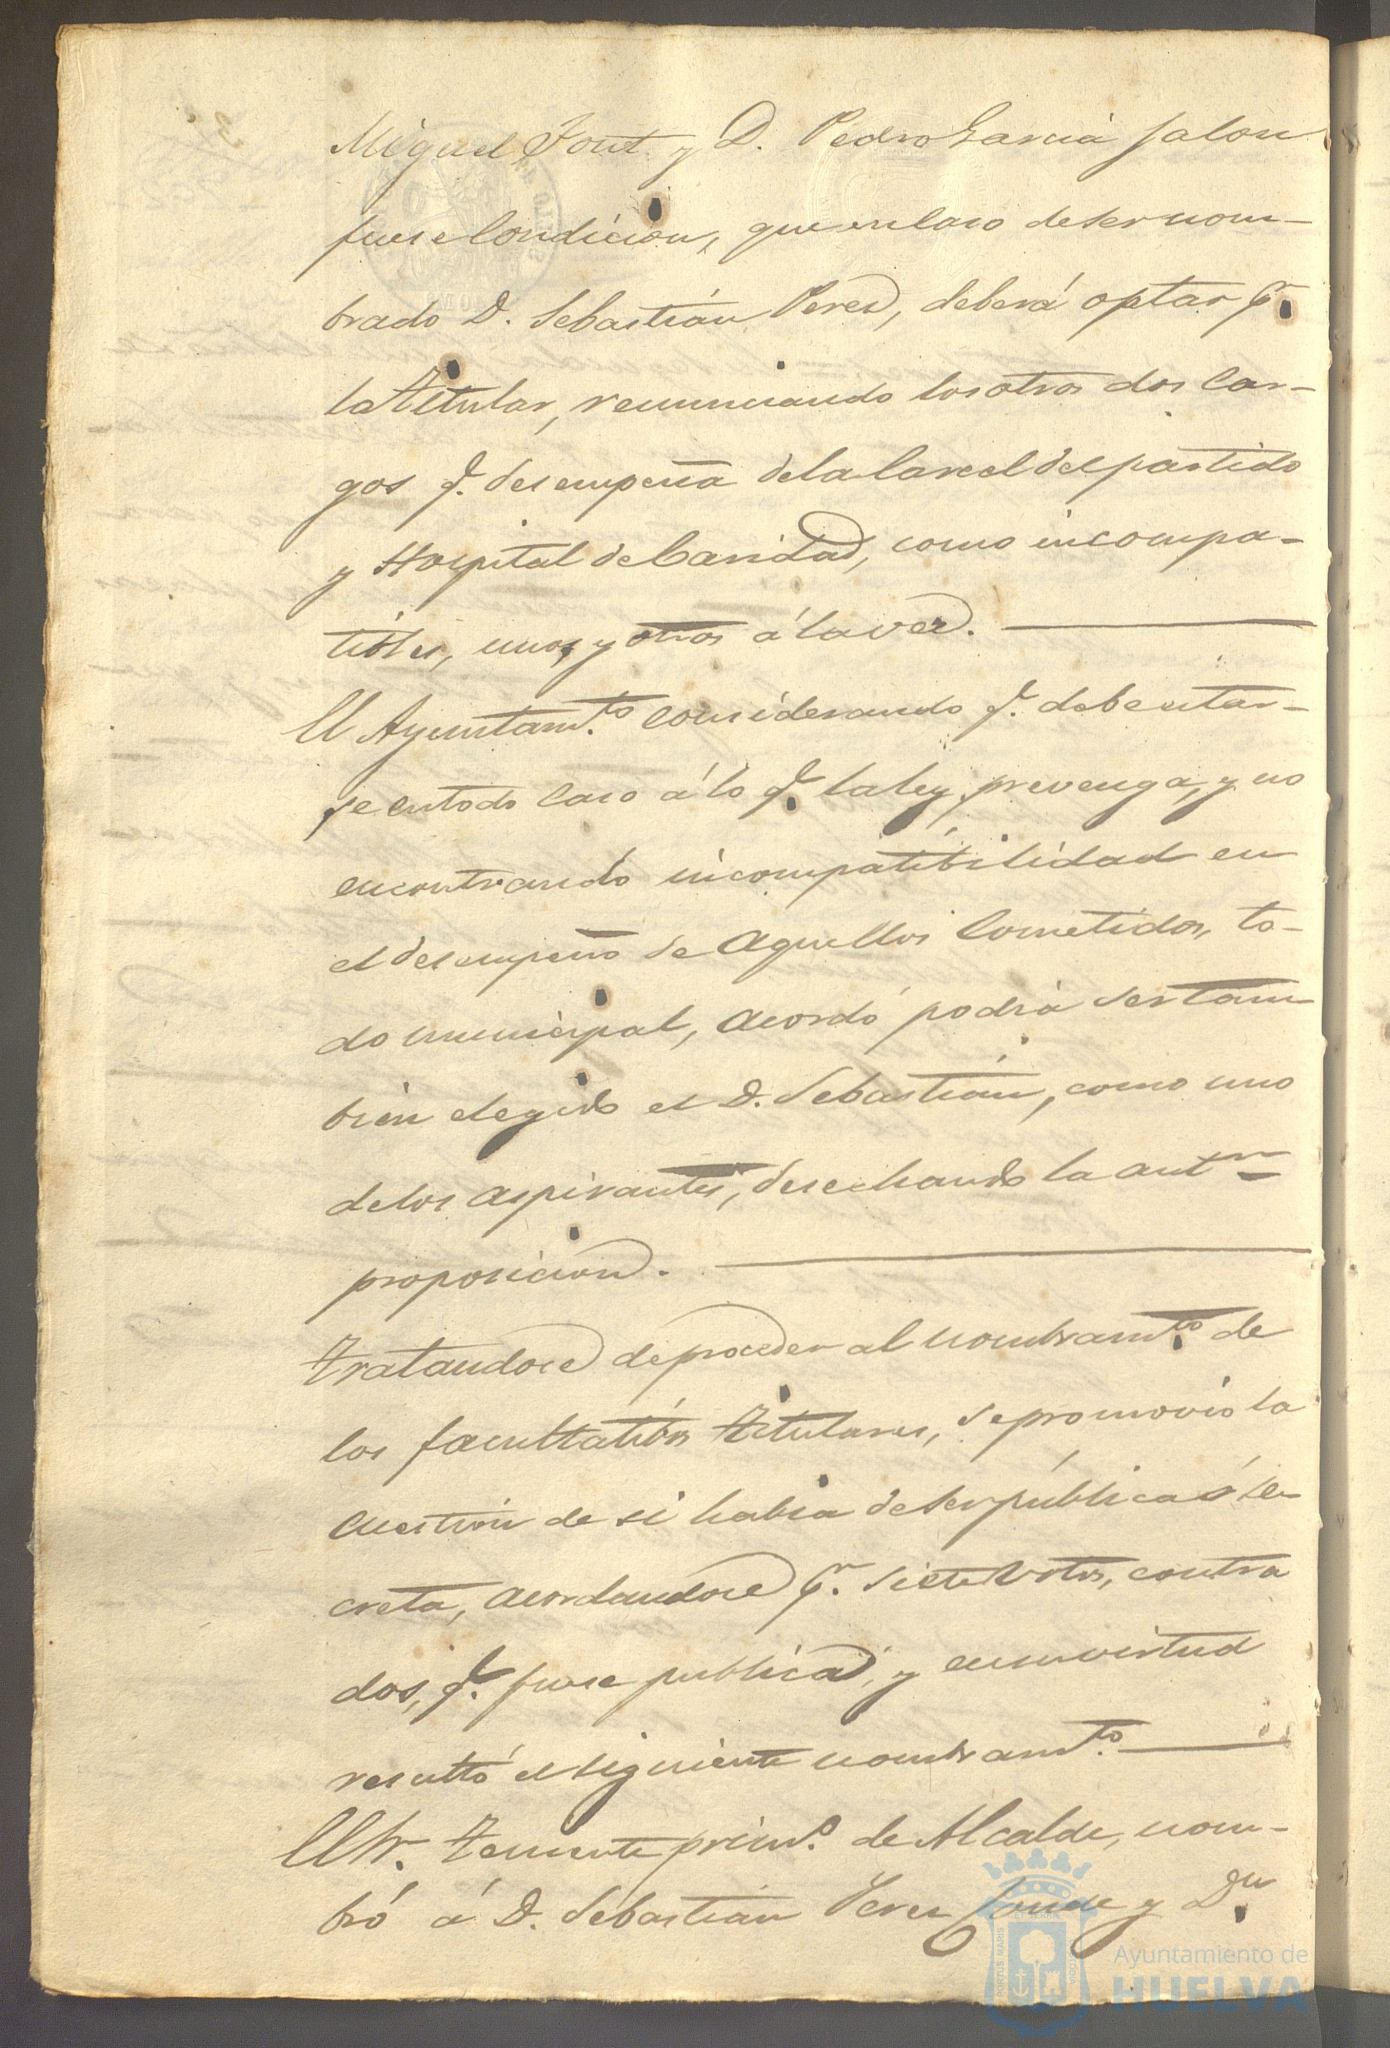 Miguel Font y D. Pedro Garcia Jalon
fuese Condicion, que en Caso de ser nom-
brado D. Sebastián Perez, deberá optar pr.
la titular, renunciando los otros dos Car-
gos q. desempeña de la Carcel del partido
y Hospital de Caridad, como incompa-
tibles, unos y otros á la vez.
El Ayuntamto. Considerando q. debe estar-
se en todo Caso á lo q. la ley prevenga, y no
encontrando incompatibilidad en
el desempeño de aquellos Cometidos, to-
do municipal, acordó podria ser tam-
bien elegido el D. Sebastián, como uno
de los aspirantes, desechando la antr
proposicion.
Tratandose de proceder al nombramto. de
los facultativos titulares, se promovió la
cuestion de si habia de ser pública ó se-
creta, acordandose pr. siete votos, contra
dos, q. fuese publica, y en su virtud
resultó el siguiente nombramto.
El Sr. Teniente primo. de Alcalde, nom-
bró á D. Sebastián Perez Conde y Dn.
Ayuntamiento de
HUELVA